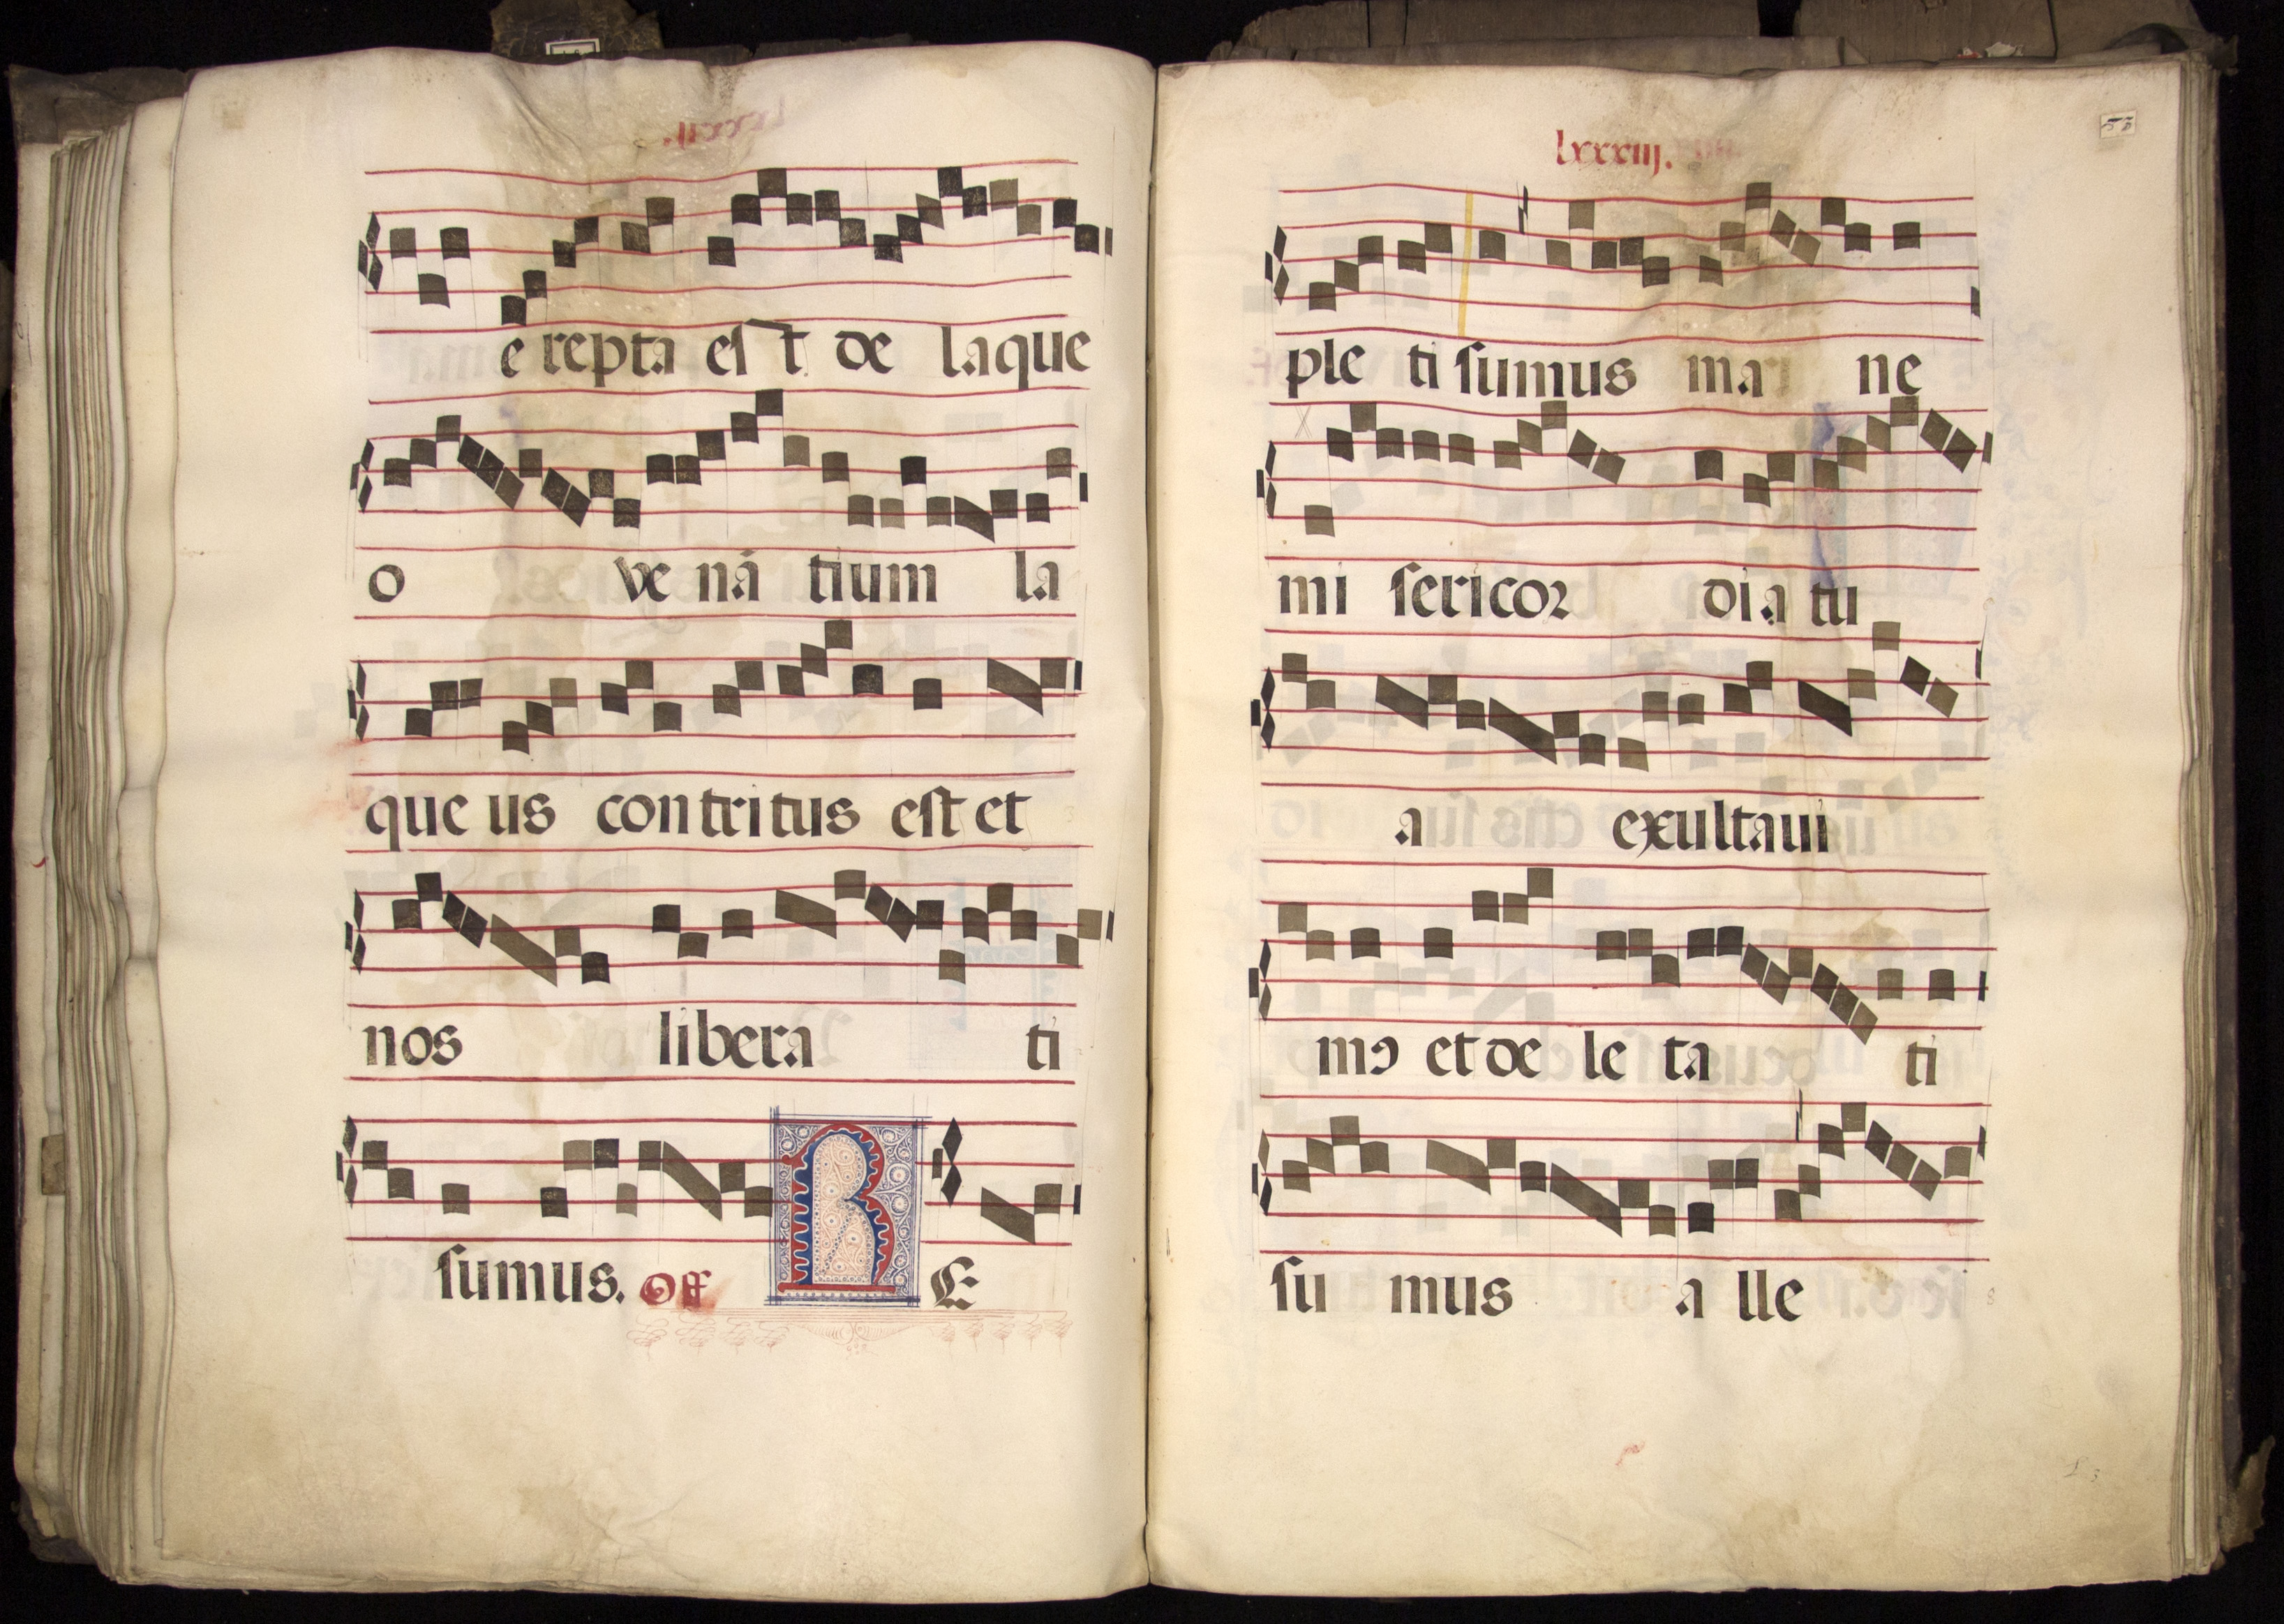 e repta est de laque
o ve nā tium la
que us contritus est et
nos libera ti
sumus. Off R E
lxxxiij.
ple ti sumus ma ne
mi sericor dia tu
a exultaui
mꝰ et de le ta ti
su mus a lle